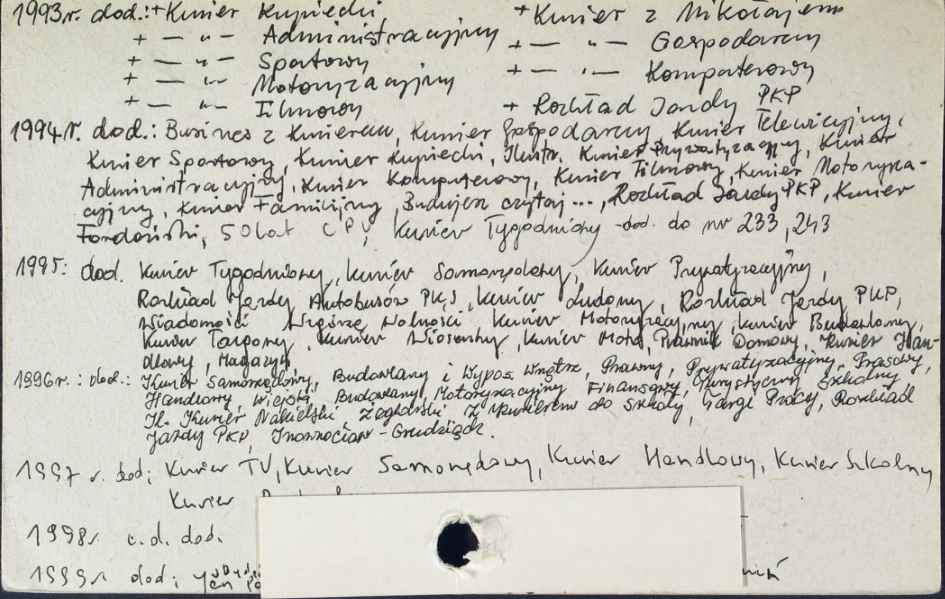 1993r. dod.: + Kurier Kupiecki + Kurier z Mikołajem
+ — " — Administracyjny + — " — Gospodarczy
+ — " — Sportowy + — " — Komputerowy
+ — " — Motoryzacyjny
+ — " — Filmowy + Rozkład Jazdy PKP
1994r. dod.: Busines z Kurierem, Kurier Gospodarczy, Kurier Telewizyjny,
Kurier Sportowy, Kurier Kupiecki, Ilustr. Kurier Prywatyzacyjny, Kurier
Administracyjny, Kurier Komputerowy, Kurier Filmowy, Kurier Motoryza-
cyjny, Kurier Familijny, Budujesz czytaj ..., Rozkład Jazdy PKP, Kurier
Fordoński, 50 lat CPV, Kurier Tygodniowy - dod. do nr 233, 243
1995: dod. Kurier Tygodniowy, Kurier Samorządowy, Kurier Prywatyzacyjny,
Rozkład Jazdy, Autobusów PKS, Kurier Ludowy, Rozkład Jazdy PKP,
Wiadomości Wolności Kurier Motoryzacyjny, Kurier Budowlany,
Kurier Targowy, Kurier Wiosenny, Kurier Moto, Prawnik Domowy, Kurier Han-
dlowy, Magazyn
1996r.: dod.: Kurier Samorządowy, Budowlany i Wypos. Wnętrz, Prawny, Prywatyzacyjny, Prasowy,
Handlowy, Wiejski, Budowlany, Motoryzacyjny, Finansowy, Turystyczny, Szkolny,
Il. Kurier Nakielski, Żeglarski, Z Kurierem do Szkoły, Targi Pracy, Rozkład
Jazdy PKP, Inowrocław - Grudziądz.
1997 r. dod; Kurier TV, Kurier Samorządowy, Kurier Handlowy, Kurier Szkolny
Kurier
1998r. c.d. dod.
1999r dod;